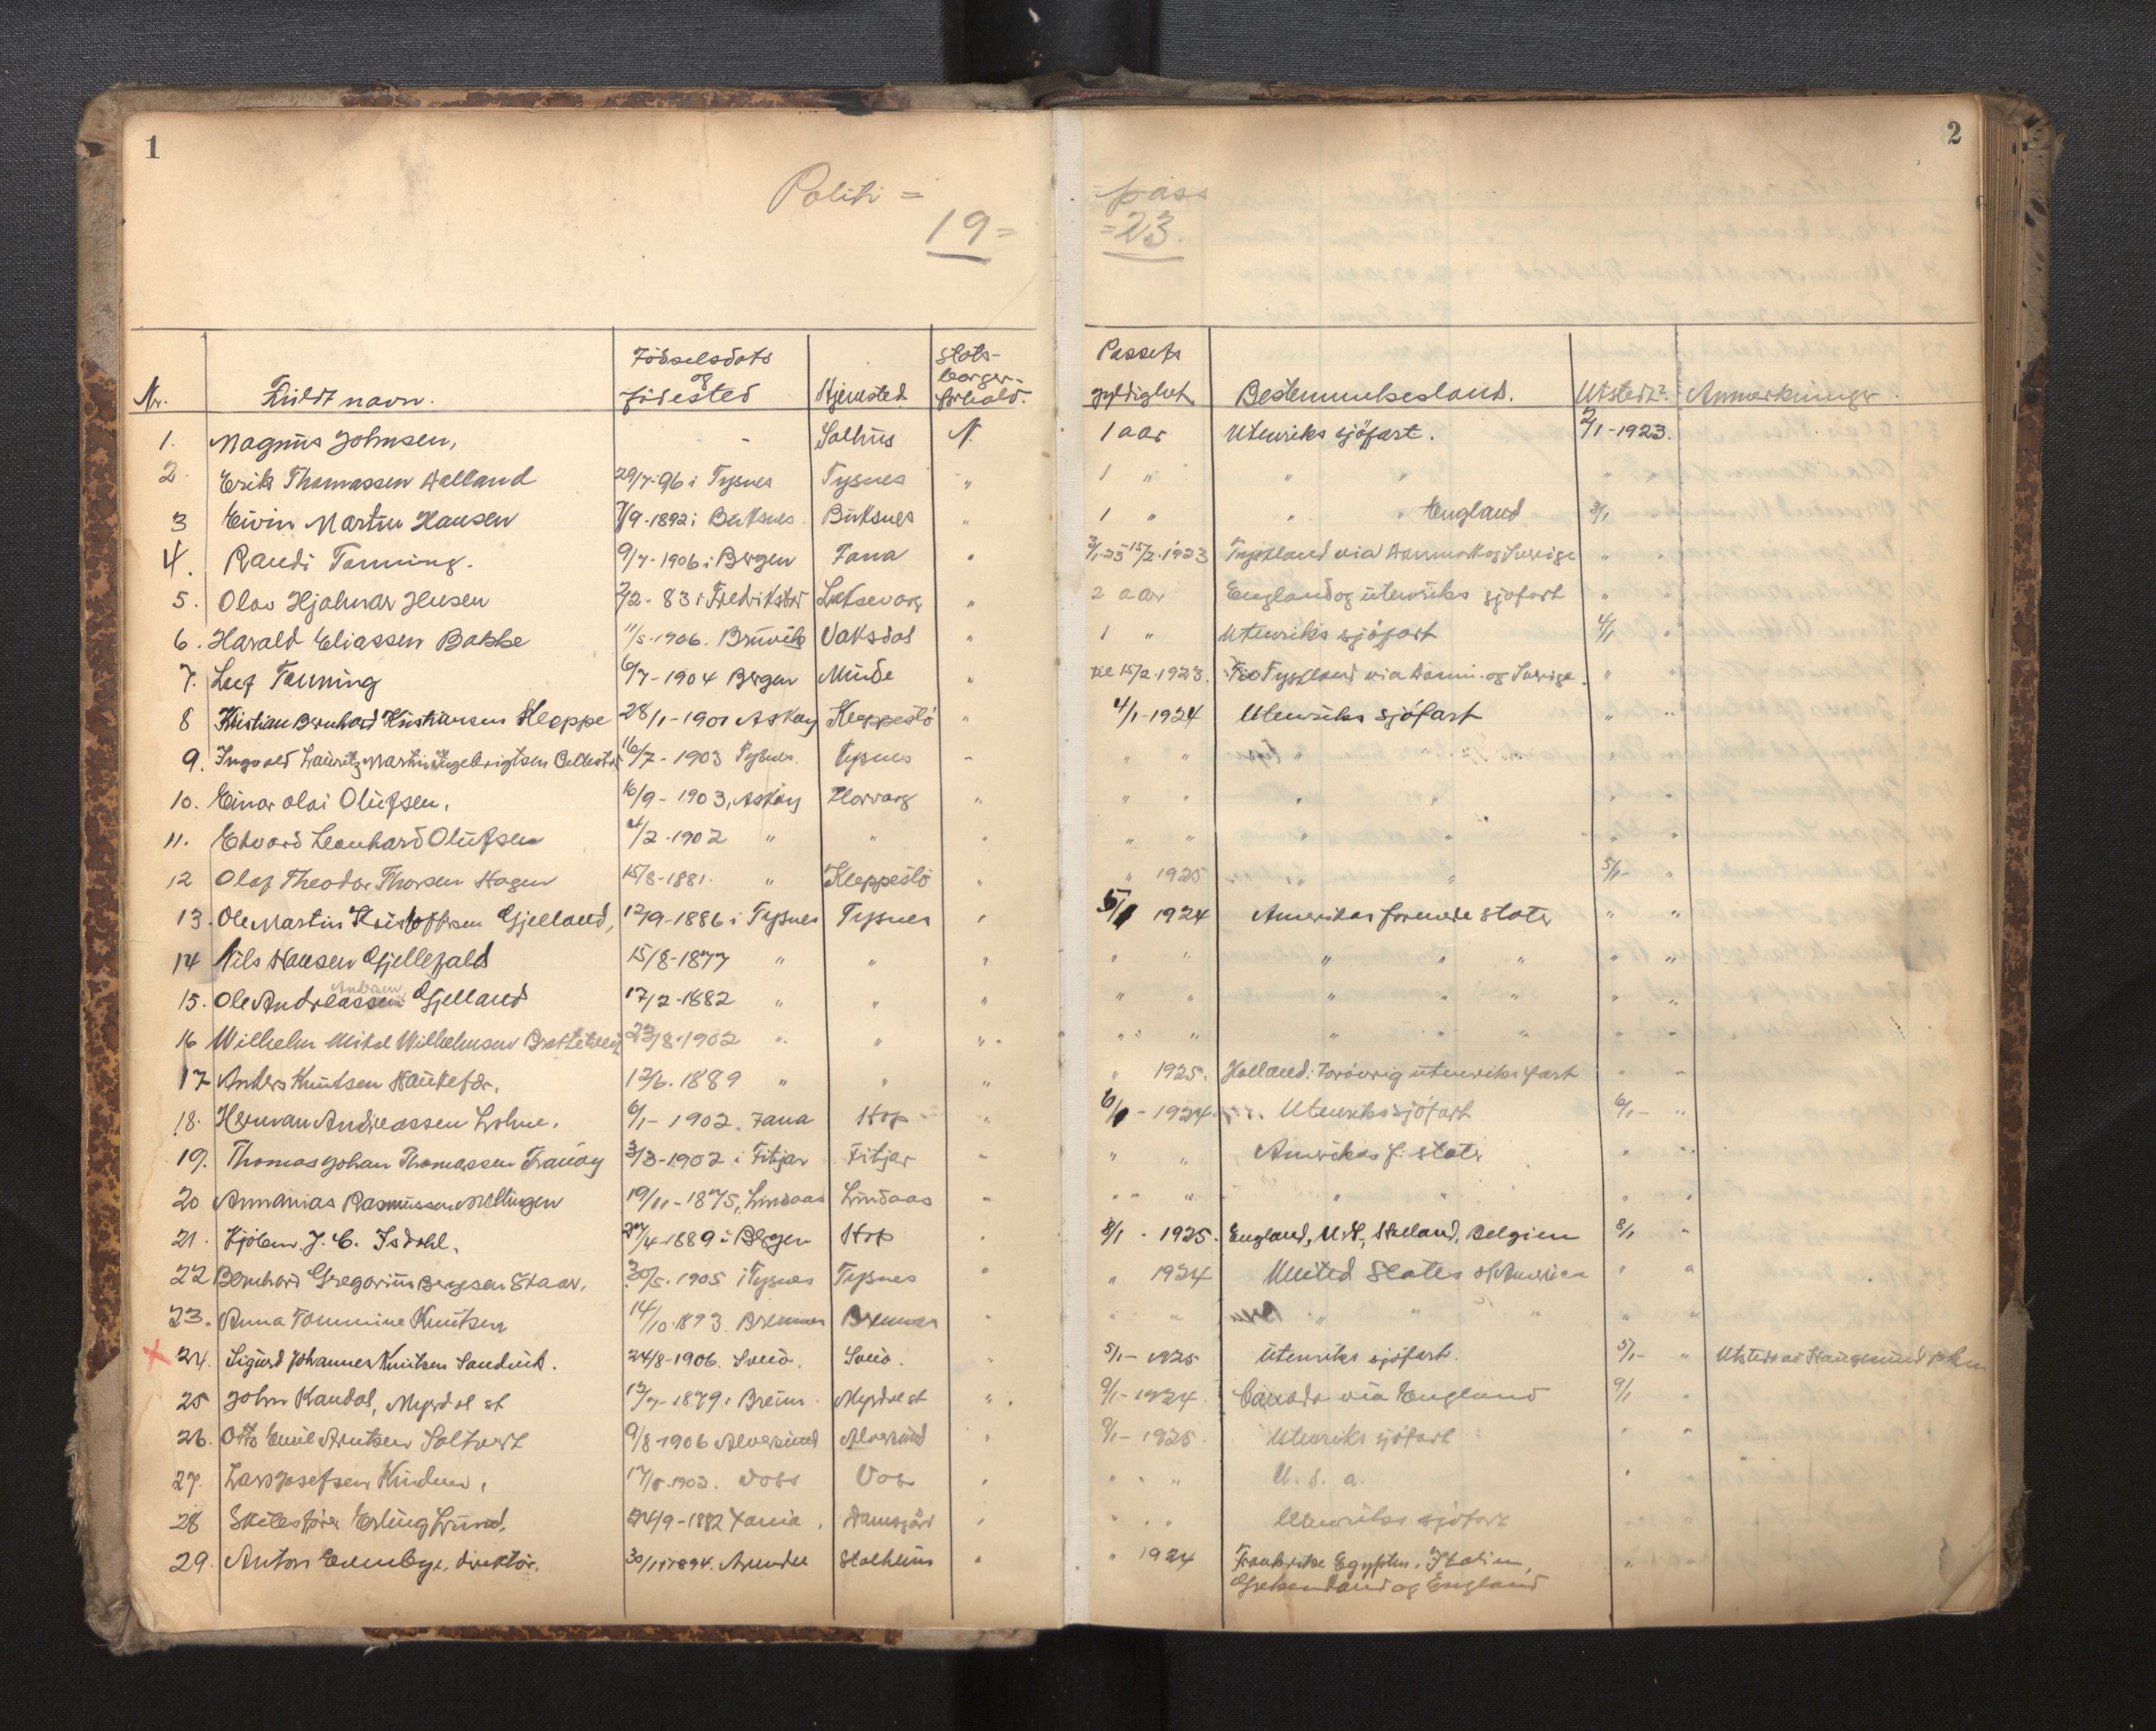 1
2
Politi =
pass
19=
=23.
Nr. Fuldt navn. Födselsdato og födested Hjemsted Stats-borger-forhold. Passets gyldighet Bestemmelsesland. Utstedt Anmerkninger
1. Magnus Johnsen, - Salhus N. 1 aar Utenriks sjöfart. 2/1-1923.
2 Erik Thomassen Aalland 29/7-96 i Tysnes Tysnes " 1 " " " "
3 Eivin Martin Hansen 7/9-1892 i Buksnes Buksnes " 1 " " " England 3/1 "
4. Randi Tonning. 9/7-1906 i Bergen Fana " 3/1-23 15/2-1923 Tyskland via Danmark og Sverige " "
5. Olav Hjalmar 2-83 i Fredrikstad Laksevaag " 2 aar England og utenriks sjöfart " "
6. Harald Eliassen Bakke 11/5-1906. Bruvik Vaksdal " 1 " Utenriks sjöfart 4/1 "
7. Leif Tonning 6/7-1904 Bergen Minde " til 15/2-1923. Tyskland via Danm. og Sverige. " "
8 Kristian Bernhard Kristiansen Kleppe 28/1-1901 Asköy Kleppestö " 4/1-1924 Utenriks sjöfart " "
9. Ingvald Lauritz Martin Ingebrigtsen 16/7-1903 Tysnes. Tysnes " " " " " " "
10. Einar Olai Olufsen, 16/9-1903, Asköy Florvaag " " " " " " "
11. Edvard Leonhard Olufsen 4/2-1902 " " " " " " " " "
12 Olaf Theodor Thorsen Hagen 15/8-1881. " Kleppestö " " 1925 " " 5/1- "
13. Ole Martin Kristoffersen Gjelland, 12/9-1886 i Tysnes Tysnes " 5/1 1924 Amerikas forenede stater " "
14 Nils Hansen Gjellefald 15/8-1877 " " " " " " " " " "
15. Ole Andreassen Gjelland 17/2-1882 " " " " " " " " " "
16 Wilhelm Mikal Wilhelmsen 23/8-1902 " " " " " " " " " "
17 Anders Knutsen Haukefær. 12/6-1889 " " " " 1925. Holland. Forövrig utenriks fart " "
18. Herman Andreassen Lohne. 6/1-1902. Fana Hop " 6/1-1924. Utenriks sjöfart 6/1- "
19. Thomas Johan Thomassen Tranöy 3/3-1902 i Fitjar Fitjar " " " Amerikas f. stater " "
20 Annanias Rasmussen Mellingen 19/11-1875, Lindaas Lindaas " " " " " " "
21. Kjöbm. J. C. Isdahl. 27/4-1889 i Bergen Hop " 8/1-1925. England, U.S., Holland, Belgien 8/1 "
22 Bernhard Gregorius Bergesen Staar. 30/5-1905 i Tysnes Tysnes " " 1924 United States of America " "
23. Anna Tommine Knutsen 14/10-1893. Bremnes Bremnes " " " " " " " "
x 24. Sigurd Johannes Knutsen Sandvik. 24/8-1906. Sveio. Sveio. " 5/1-1925 Utenriks sjöfart. 5/1- " Utstedt av Haugesund
25 John Kandal, Myrdal st 12/7-1879 i Breim. Myrdal st " 9/1-1924. Canada via England 9/1 "
26. Otto Emil Arntsen Soltvet 9/8-1906 Alversund Alversund " 9/1-1925. Utenriks sjöfart " "
27. Lars Josefsen Kinden, 17/5-1903. Voss Voss " " " U. S. a. " "
28 Skibsförer Erling Lund. 24/9-1882 Damsgård " " " Utenriks sjöfart
29. Anton direktör. 30/11-1894. Stalheim " " 1924 Frankrike Egypten, Italien, " "
Grekenland og England